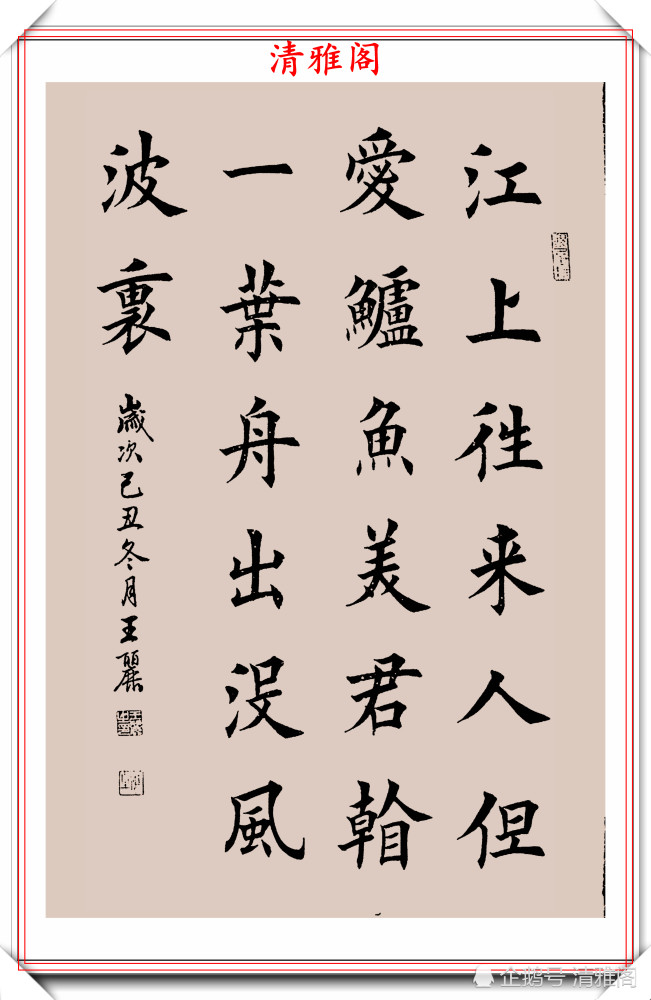 清雅阁
江上徃来人但
愛鱸魚美君看
一葉舟出没風
波裏
歲次己丑冬月王麗
企鹅号 清雅阁